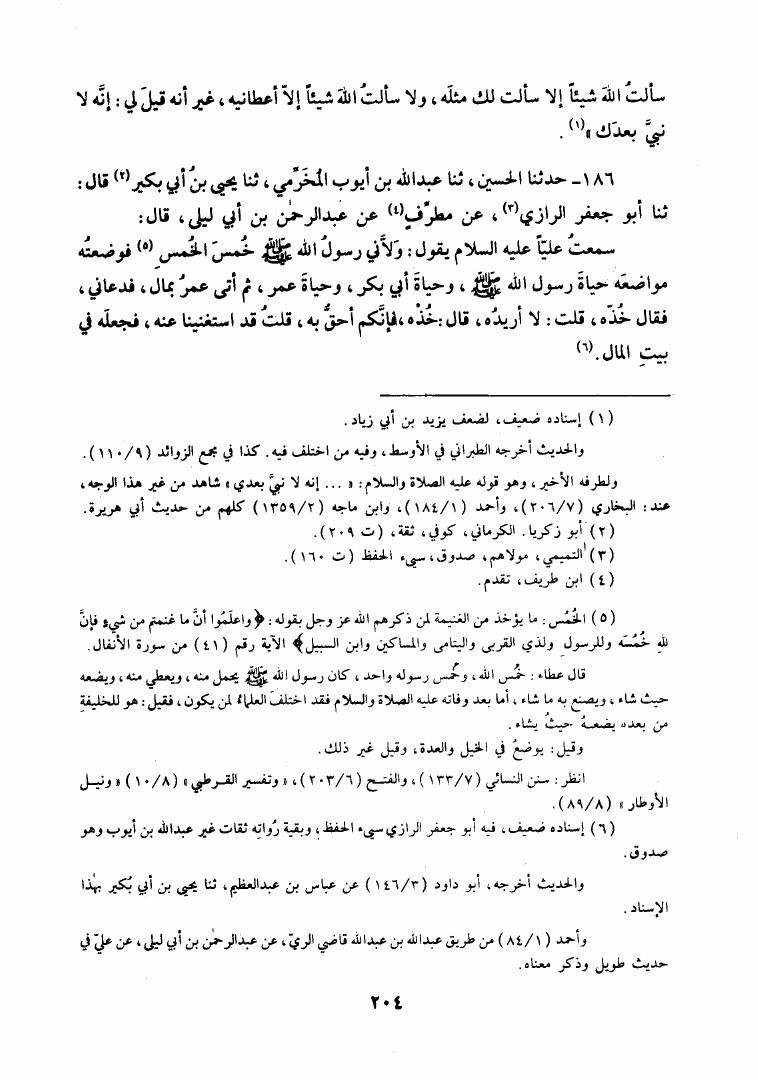 سألتُ اللهَ شيئاً إلا سألت لك مثلَه، ولا سألتُ اللهَ شيئاً إلاّ أعطانيه، غير أنه قيلَ لي: إنَّه لا
نبيَّ بعدَك »(١).
١٨٦ـ حدثنا الحسين، ثنا عبدالله بن أيوب المُخَرِّمي، ثنا يحيى بنُ أبي بكير(٢) قال:
ثنا أبو جعفر الرازي(٣)، عن مطرِّفٍ(٤) عن عبدالرحمٰن بن أبي ليلى، قال:
سمعتُ عليّاً عليه السلام يقول: وَلاَّني رسولُ الله ﷺ خُمسَ الخُمسِ(٥) فوضعتُه
مواضعَه حياةَ رسول الله ﷺ، وحياةَ أبي بكر، وحياةَ عمر، ثم أتى عمرُ بمال، فدعاني،
فقال خُذْه، قلت: لا أريدُه، قال:خُذْه،فإنَّكم أحقُّ به، قلتُ قد استغنينا عنه، فجعلَه في
بيتِ المال.(٦)
(١) إسناده ضعيف، لضعف يزيد بن أبي زياد.
والحديث أخرجه الطبراني في الأوسط، وفيه من اختلف فيه. كذا في مجمع الزوائد (١١٠/٩).
ولطرفه الأخير، وهو قوله عليه الصلاة والسلام: « ... إنه لا نبيَّ بعدي» شاهد من غير هذا الوجه،
عند: البخاري (٢٠٦/٧)، وأحمد (١٨٤/١)، وابن ماجه (١٣٥٩/٢) كلهم من حديث أبي هريرة.
(٢) أبو زكريا. الكرماني، كوفي، ثقة، (ت ٢٠٩).
(٣) التميمي، مولاهم، صدوق، سيىء الحفظ (ت ١٦٠).
(٤) ابن طريف، تقدم.
(٥) الخُمُس: ما يؤخذ من الغنيمة لمن ذكرهم الله عز وجل بقوله: ﴿واعلَمُوا أنَّ ما غنمتم من شيءٍ فإنَّ
للهِ خُمُسَه وللرسولِ ولذي القربى واليتامى والمساكين وابن السبيل﴾ الآية رقم (٤١) من سورة الأنفال.
قال عطاء: خُمُس الله، وخُمس رسوله واحد، كان رسول الله ﷺ يحمل منه، ويعطي منه، ويضعه
حيث شاء، ويصنع به ما شاء، أما بعد وفاته عليه الصلاة والسلام فقد اختلفَ العلماءُ لمن يكون، فقيل: هو للخليفةِ
من بعده يضعهُ حيثُ يشاء.
وقيل: يوضعُ في الخيل والعدة، وقيل غير ذلك.
انظر: سنن النسائي (١٣٣/٧)، والفتح (٢٠٣/٦)، «وتفسير القرطبي» (١٠/٨) «ونيل
الأوطار» (٨٩/٨).
(٦) إسناده ضعيف، فيه أبو جعفر الرازي سيىء الحفظ، وبقية رُواتِه ثقات غير عبدالله بن أيوب وهو
صدوق.
والحديث أخرجه، أبو داود (١٤٦/٣) عن عباس بن عبدالعظيم، ثنا يحيى بن أبي بُكير بهٰذا
الإسناد.
وأحمد (٨٤/١) من طريق عبدالله بن عبدالله قاضي الريّ، عن عبدالرحمٰن بن أبي ليلى، عن عليّ في
حديث طويل وذكر معناه.
٢٠٤